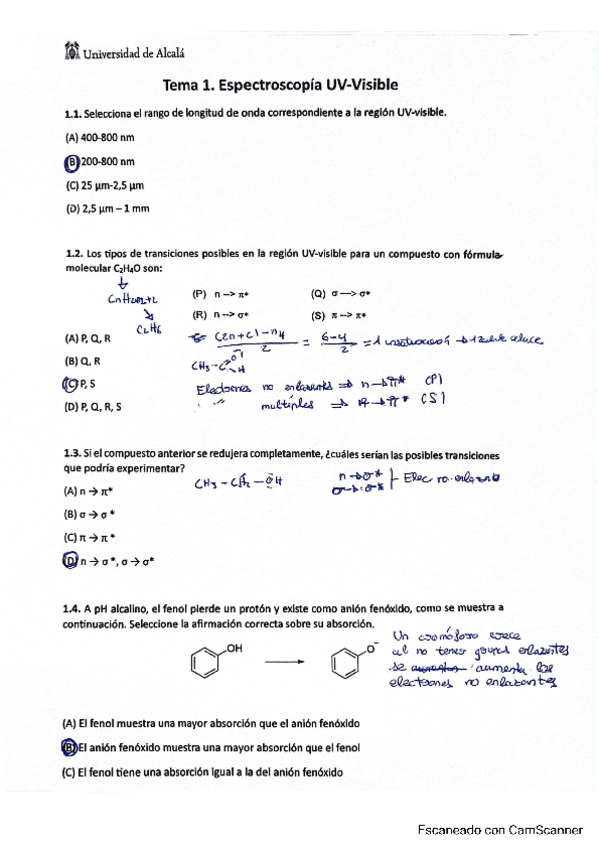 Universidad de Alcalá
Tema 1. Espectroscopía UV-Visible
1.1. Selecciona el rango de longitud de onda correspondiente a la región UV-visible.
(A) 400-800 nm
(B) 200-800 nm
(C) 25 µm-2,5 µm
(D) 2,5 µm – 1 mm
1.2. Los tipos de transiciones posibles en la región UV-visible para un compuesto con fórmula
molecular C₂H₄O son:
CnH2n+2
C2H6
(P) n --> π* (Q) σ ---> σ*
(R) n --> σ* (S) π --> π*
(A) P, Q, R
(2n+2)-nH / 2 = 6-4 / 2 = 1 insaturación → 1 doble enlace
(B) Q, R
CH3-C O H
(C) P, S
Electrones no enlazantes ⇒ n→π* (P)
(D) P, Q, R, S
" " múltiples ⇒ π→π* (S)
1.3. Si el compuesto anterior se redujera completamente, ¿cuáles serían las posibles transiciones
que podría experimentar?
CH3 - CH2 - OH
n→σ*
σ→σ*
Elec no enlazante
(A) n → π*
(B) σ → σ *
(C) π → π *
(D) n → σ *, σ → σ*
1.4. A pH alcalino, el fenol pierde un protón y existe como anión fenóxido, como se muestra a
continuación. Seleccione la afirmación correcta sobre su absorción.
OH
O⁻
Un cromóforo crece
al no tener grupos enlazantes
se aumenta los
electrones no enlazantes
(A) El fenol muestra una mayor absorción que el anión fenóxido
(B) El anión fenóxido muestra una mayor absorción que el fenol
(C) El fenol tiene una absorción igual a la del anión fenóxido
Escaneado con CamScanner